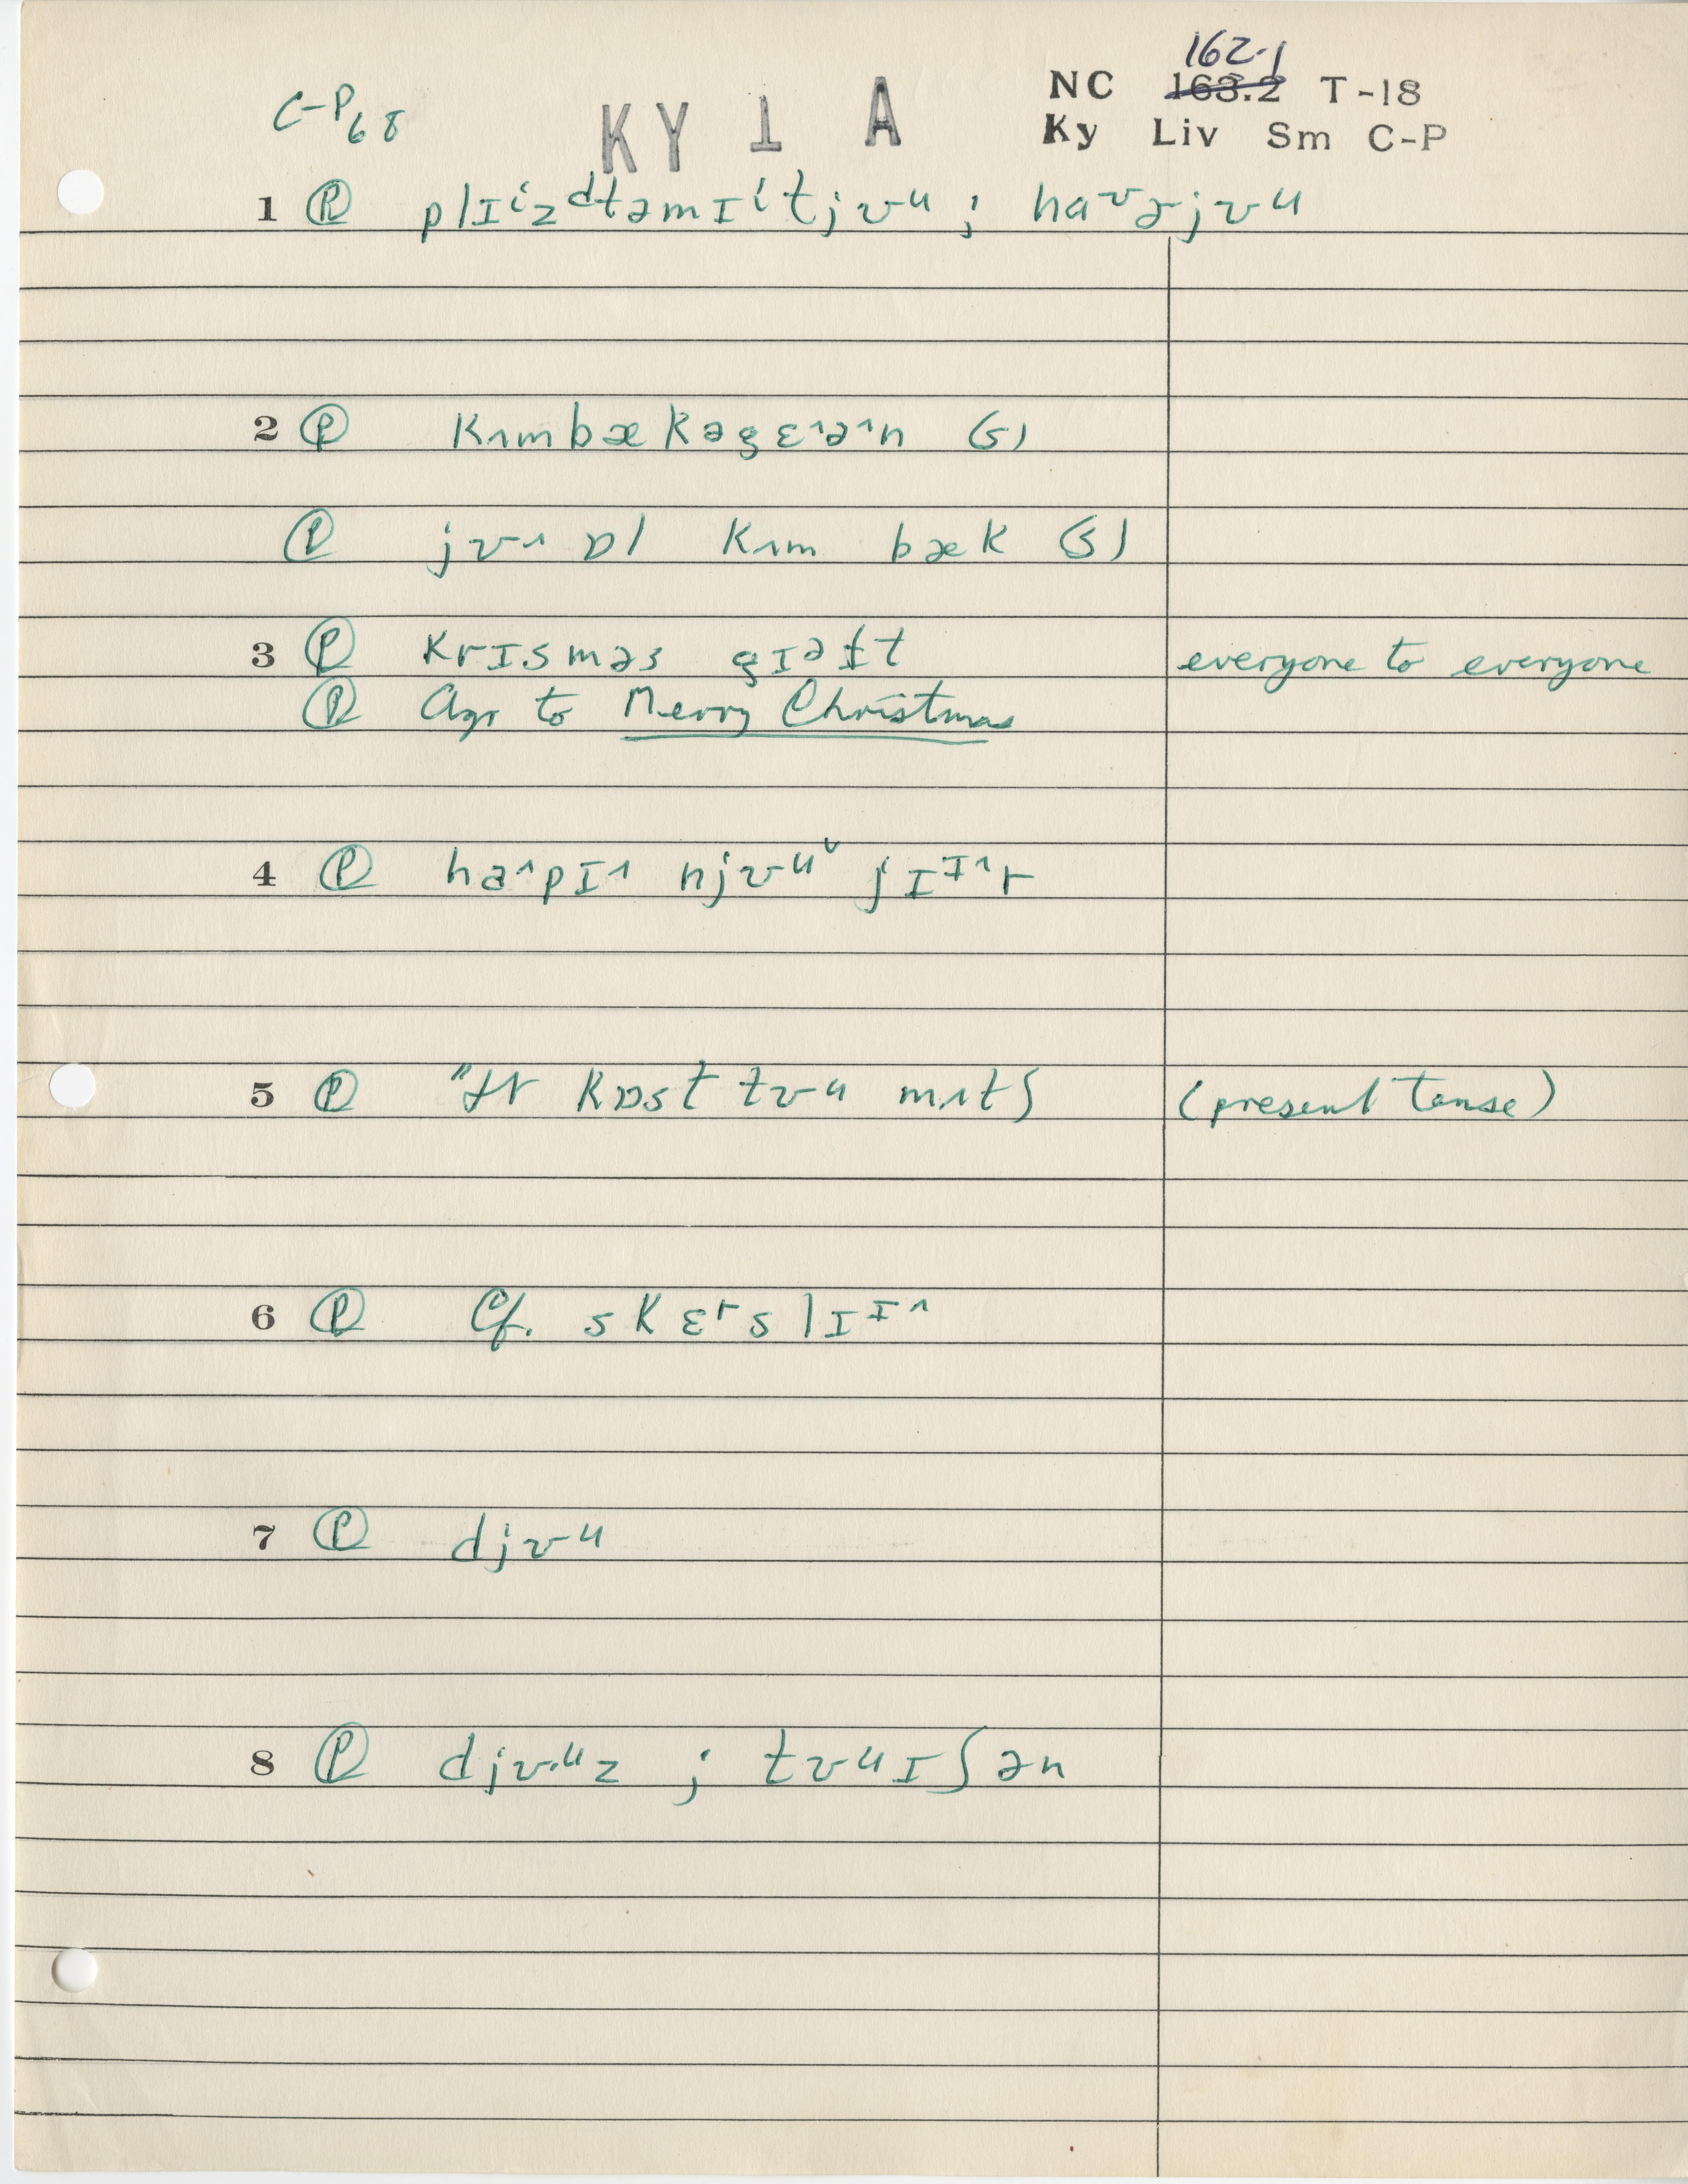 162.1
C-P68 KY 1 A NC 163.2 T-18
Ky Liv Sm C-P
1 Ⓟ plɪⁱzᵈtəmɪⁱtjʊᵘ ; haᶷɚjʊᵘ
2 Ⓟ kʌmbækəgɛ^ə^n (s)
Ⓟ jʊ^ ɒl kʌm bæk (s)
3 Ⓟ krɪsməs gɪᵊft everyone to everyone
Ⓟ Agr to Merry Christmas
4 Ⓟ ha^pɪ^ njʊᵘ˅ jɪᶦ^r
5 Ⓟ "It kɒst tʊᵘ mʌtʃ (present tense)
6 Ⓟ Cf. skɛʳslɪᶦ^
7 Ⓟ djʊᵘ
8 Ⓟ djʊ·ᵘz ; tʊᵘɪʃən